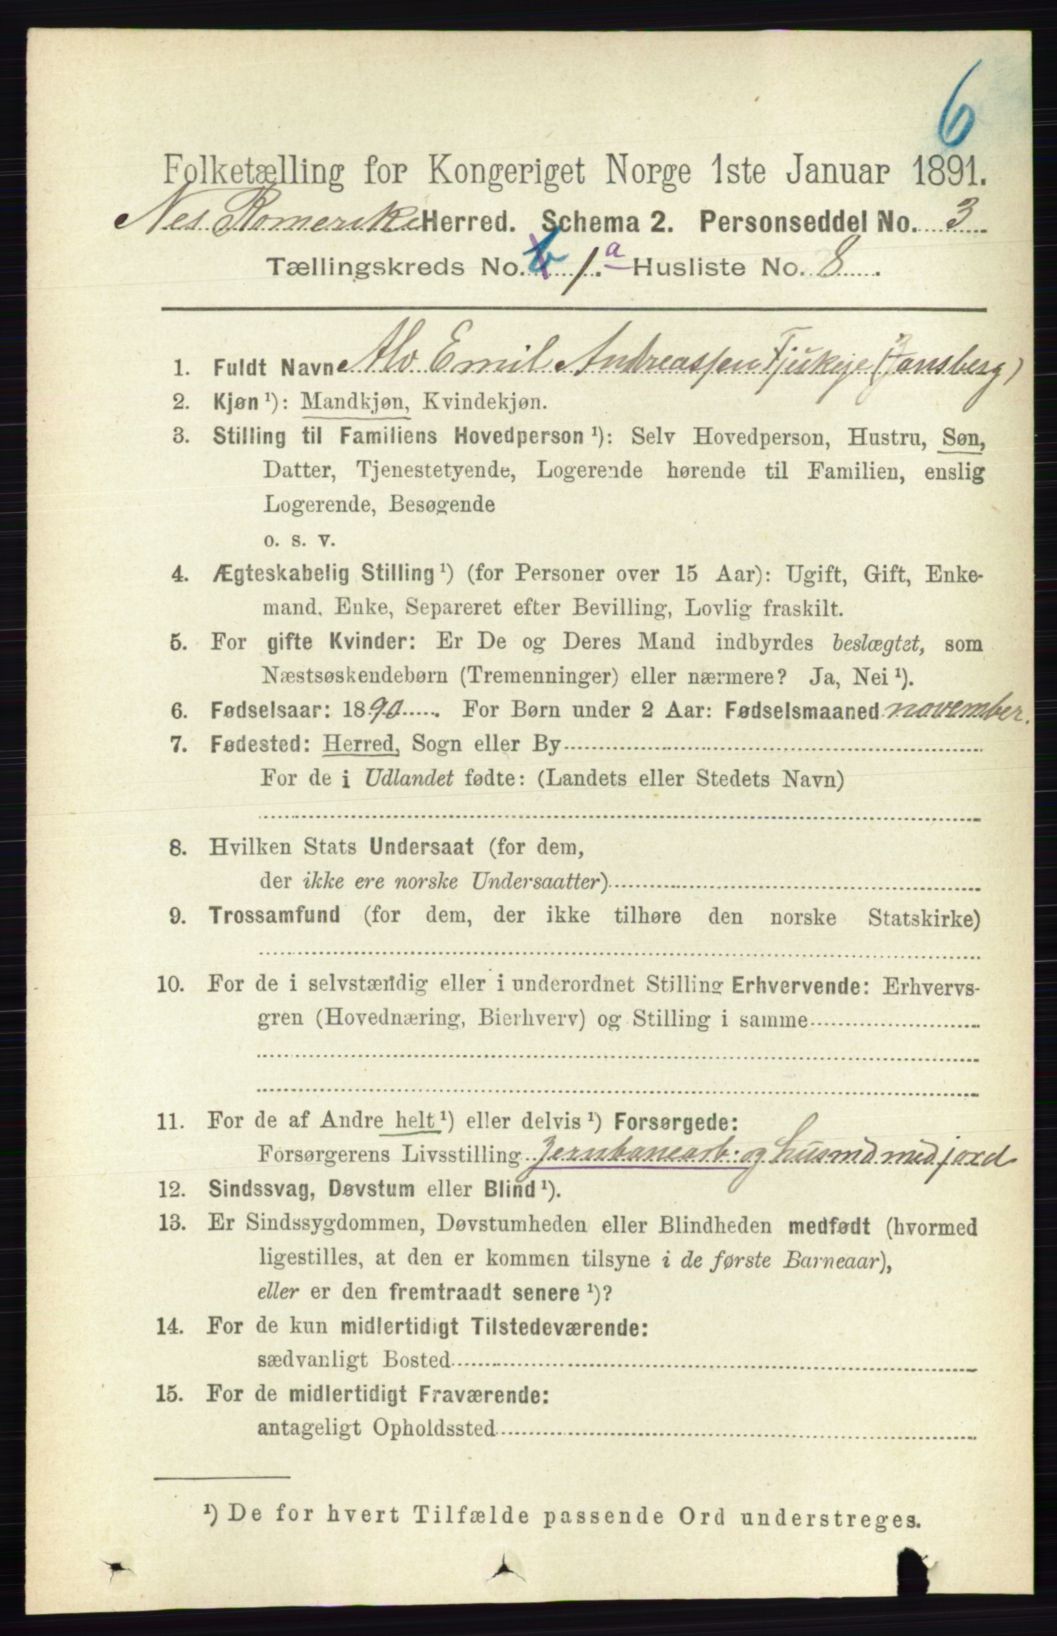 6
Folketælling for Kongeriget Norge 1ste Januar 1891.
Nes Romerike Herred. Schema 2. Personseddel No. 3
Tællingskreds No. 6 1.a Husliste No. 8.
1. Fuldt Navn Alv Emil Andreassen Tjukeje (Jansberg)
2. Kjøn¹): Mandkjøn, Kvindekjøn.
3. Stilling til Familiens Hovedperson¹): Selv Hovedperson, Hustru, Søn,
Datter, Tjenestetyende, Logerende hørende til Familien, enslig
Logerende, Besøgende
o. s. v.
4. Ægteskabelig Stilling¹) (for Personer over 15 Aar): Ugift, Gift, Enke-
mand, Enke, Separeret efter Bevilling, Lovlig fraskilt.
5. For gifte Kvinder: Er De og Deres Mand indbyrdes beslægtet, som
Næstsøskendebørn (Tremenninger) eller nærmere? Ja, Nei¹).
6. Fødselsaar: 1890. For Børn under 2 Aar: Fødselsmaaned november.
7. Fødested: Herred, Sogn eller By
For de i Udlandet fødte: (Landets eller Stedets Navn)
8. Hvilken Stats Undersaat (for dem,
der ikke ere norske Undersaatter)
9. Trossamfund (for dem, der ikke tilhøre den norske Statskirke)
10. For de i selvstændig eller i underordnet Stilling Erhvervende: Erhvervs-
gren (Hovednæring, Bierhverv) og Stilling i samme
11. For de af Andre helt¹) eller delvis¹) Forsørgede:
Forsørgerens Livsstilling Jernbanearb. og husmd med jord
12. Sindssvag, Døvstum eller Blind¹).
13. Er Sindssygdommen, Døvstumheden eller Blindheden medfødt (hvormed
ligestilles, at den er kommen tilsyne i de første Barneaar),
eller er den fremtraadt senere¹)?
14. For de kun midlertidigt Tilstedeværende:
sædvanligt Bosted
15. For de midlertidigt Fraværende:
antageligt Opholdssted
¹) De for hvert Tilfælde passende Ord understreges.